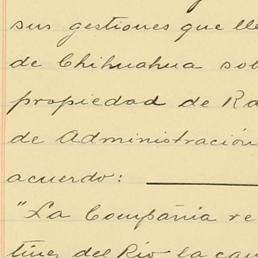 sus gestiones que lle
de Chihuahua sob
propiedad de Ra
de Administración
acuerdo:
"La Compañia re
tinez del Rio la can